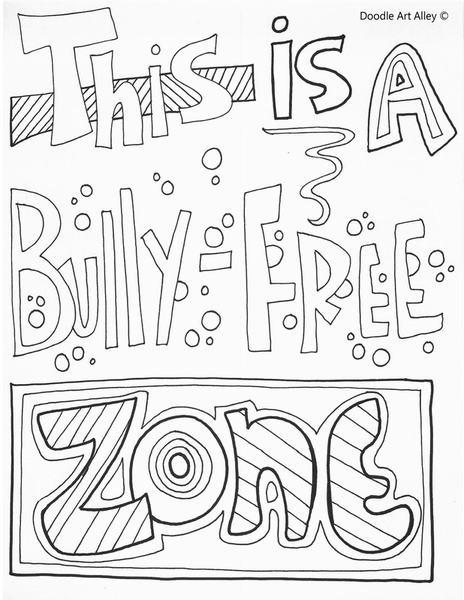 Doodle Art Alley ©
This is A
Bully-FREE
Zone